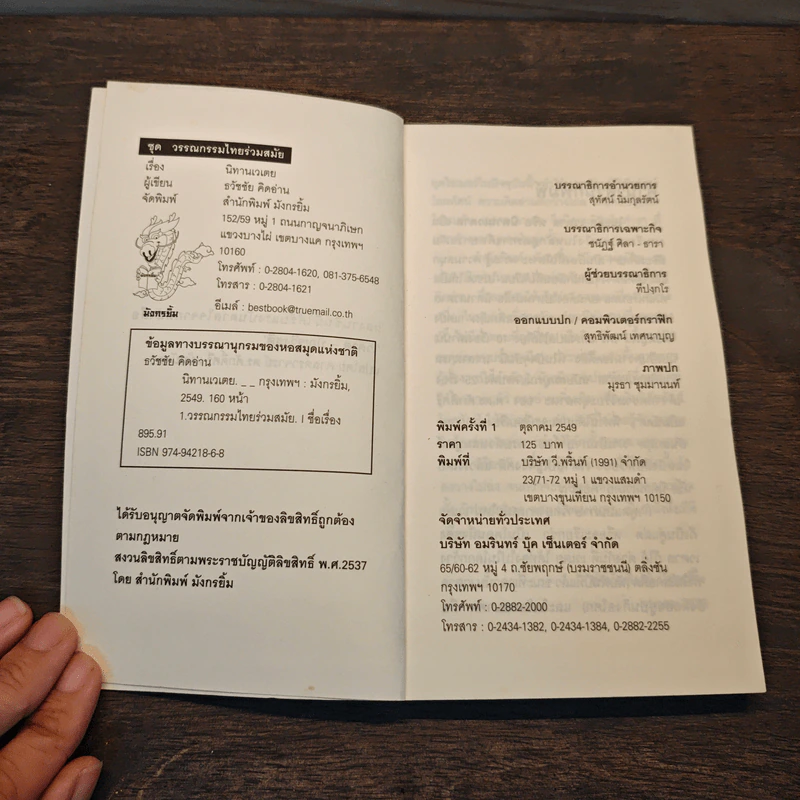 ชุด วรรณกรรมไทยร่วมสมัย
เรื่อง นิทานเวเตย
ผู้เขียน ธวัชชัย คิดอ่าน
จัดพิมพ์ สำนักพิมพ์ มังกรยิ้ม
152/59 หมู่ 1 ถนนกาญจนาภิเษก
แขวงบางไผ่ เขตบางแค กรุงเทพฯ
10160
โทรศัพท์ : 0-2804-1620, 081-375-6548
โทรสาร : 0-2804-1621
อีเมล์ : bestbook@truemail.co.th
มังกรยิ้ม
ข้อมูลทางบรรณานุกรมของหอสมุดแห่งชาติ
ธวัชชัย คิดอ่าน
นิทานเวเตย. _ _ กรุงเทพฯ : มังกรยิ้ม,
2549. 160 หน้า
1.วรรณกรรมไทยร่วมสมัย. I ชื่อเรื่อง
895.91
ISBN 974-94218-6-8
ได้รับอนุญาตจัดพิมพ์จากเจ้าของลิขสิทธิ์ถูกต้อง
ตามกฎหมาย
สงวนลิขสิทธิ์ตามพระราชบัญญัติลิขสิทธิ์ พ.ศ.2537
โดย สำนักพิมพ์ มังกรยิ้ม
บรรณาธิการอำนวยการ
สุทัศน์ นิ่มกุลรัตน์
บรรณาธิการเฉพาะกิจ
ชนัฏฐ์ ศิลา - ธารา
ผู้ช่วยบรรณาธิการ
ทีปงกโร
ออกแบบปก / คอมพิวเตอร์กราฟิก
สุทธิพัฒน์ เทศนาบุญ
ภาพปก
มุรธา ชุมมานนท์
พิมพ์ครั้งที่ 1 ตุลาคม 2549
ราคา 125 บาท
พิมพ์ที่ บริษัท วี.พริ้นท์ (1991) จำกัด
23/71-72 หมู่ 1 แขวงแสมดำ
เขตบางขุนเทียน กรุงเทพฯ 10150
จัดจำหน่ายทั่วประเทศ
บริษัท อมรินทร์ บุ๊ค เซ็นเตอร์ จำกัด
65/60-62 หมู่ 4 ถ.ชัยพฤกษ์ (บรมราชชนนี) ตลิ่งชัน
กรุงเทพฯ 10170
โทรศัพท์ : 0-2882-2000
โทรสาร : 0-2434-1382, 0-2434-1384, 0-2882-2255